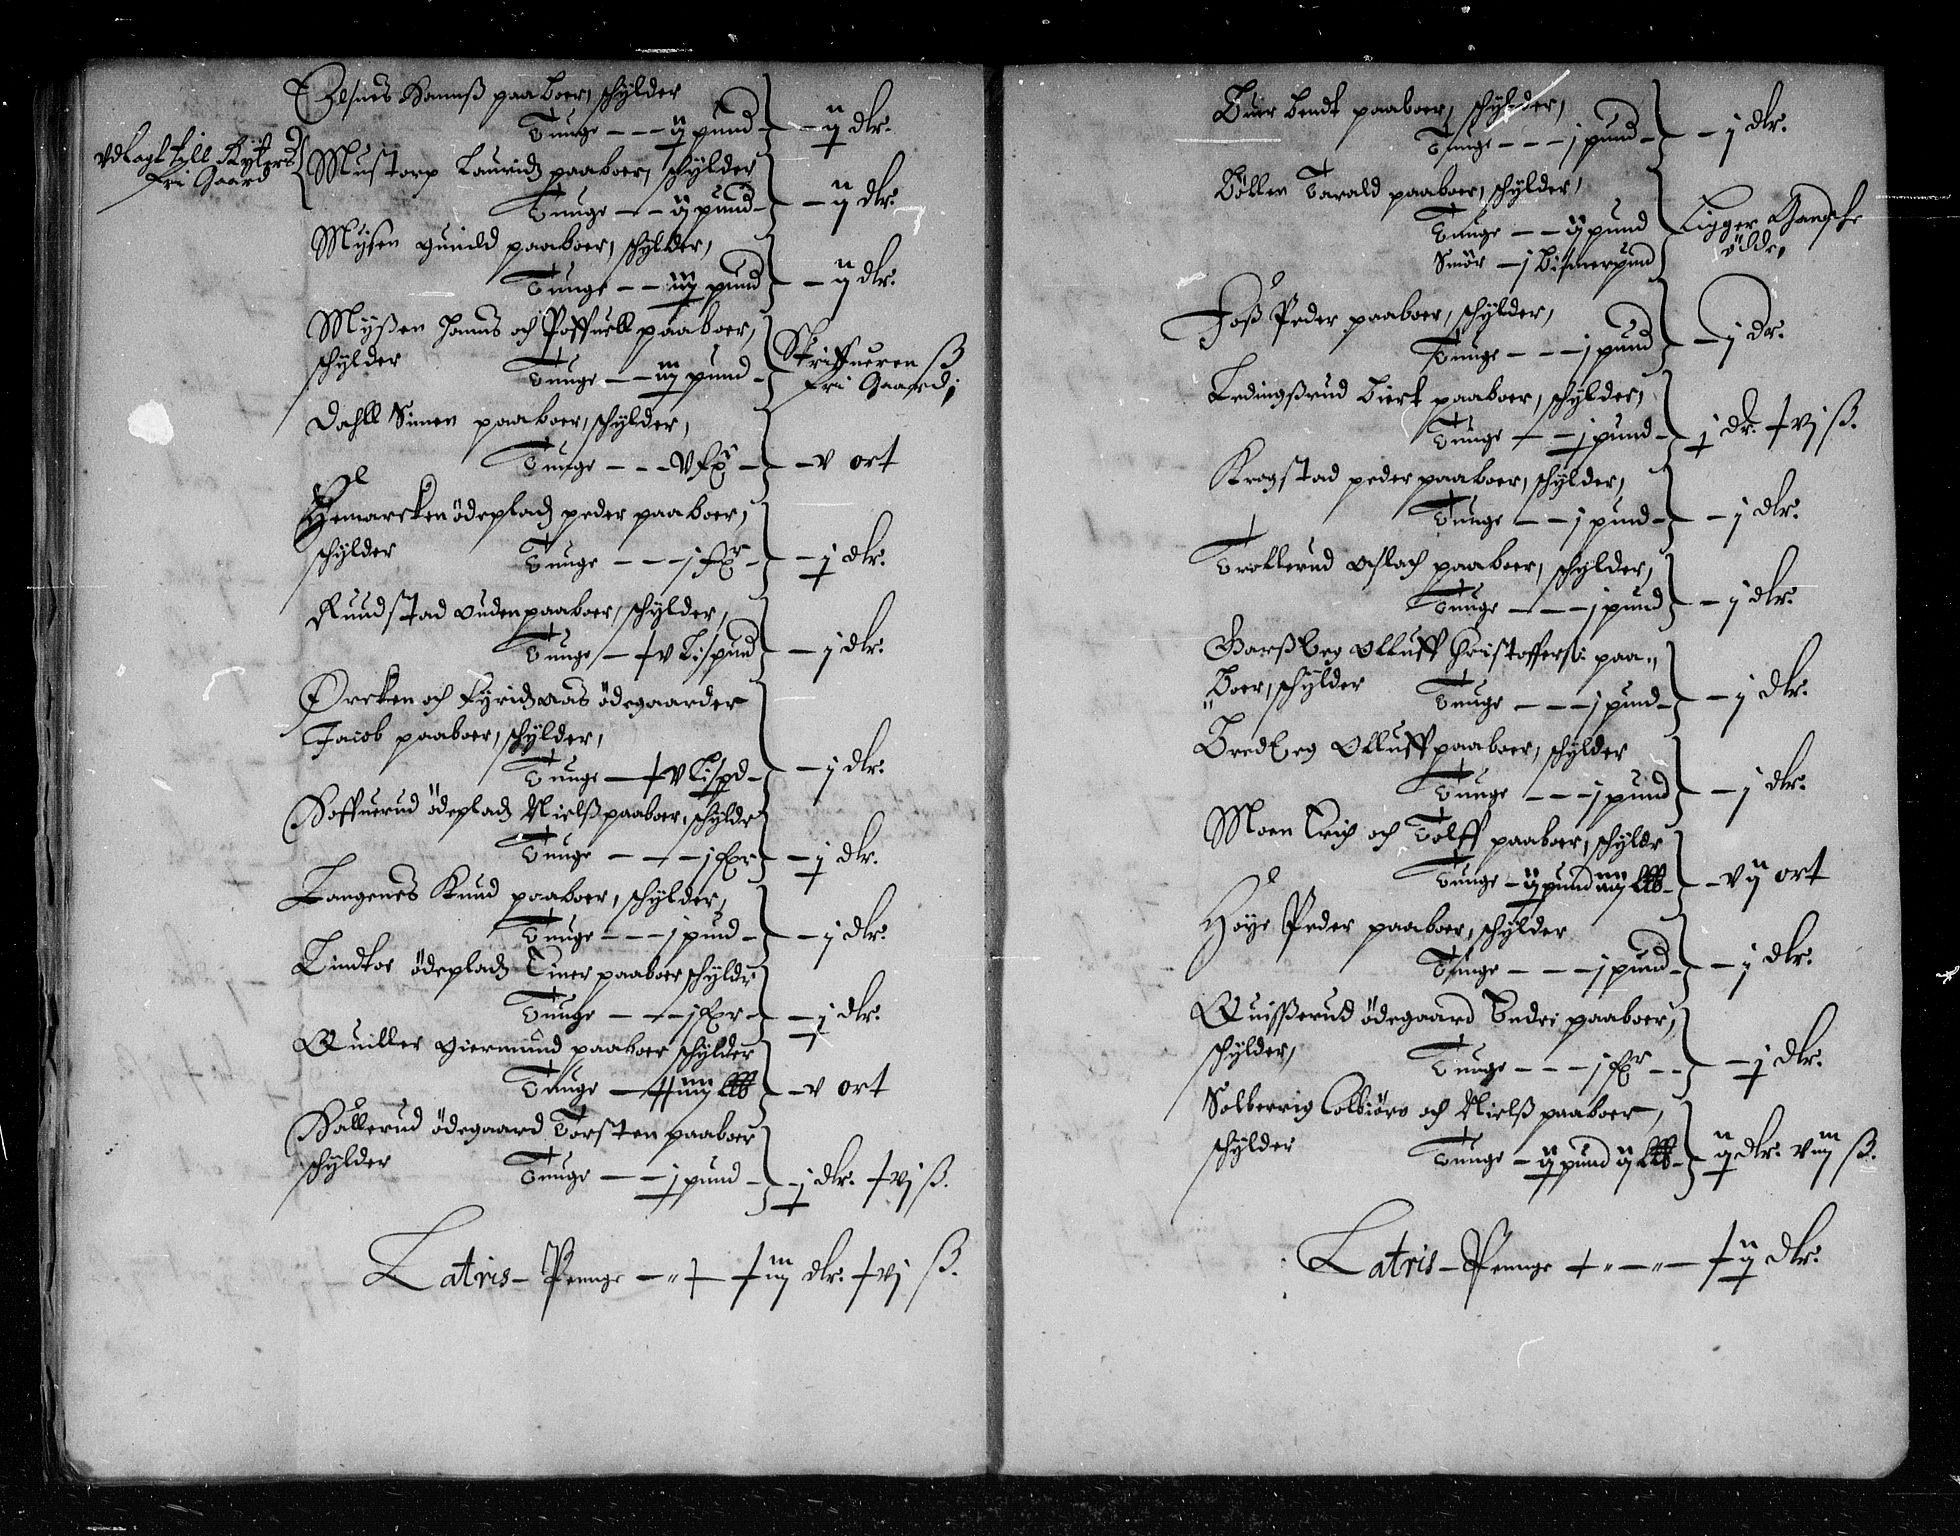 Elsnes Hannß paaboer, schylder
Tunge - - - ij pund - - ij dlr.
Vdlagt till Ryters
fri Gaard
Mustorp Lauridz paaboer, schylder
Tunge - - ij pund - - ij dlr.
Mysen Gunild paaboer, schylder,
Tunge - - iij pund - ij dlr.
Mysen Hanns och Poffuell paaboer,
schylder Tunge - - iij pund - Skriffuerenß
fri Gaard,
Dahll Simen paaboer, schylder,
Tunge - - - V fxr - - v ort
Hemarcken ödepladz peder paaboer,
schylder Tunge - - - j fxr - - j dlr.
Ruudstad Auden paaboer, schylder,
Tunge - + v Lispund - j dlr.
Örcken och Fyridzaas ödegaarder
Jacob paaboer, schylder,
Tunge - + v Lispd - - j dlr.
Hoffuerud ödepladz Nielß paaboer, schyldr
Tunge - - - j fxr - j dlr.
Langenes Knud paaboer, schylder,
Tunge - - - j pund - - j dlr.
Lindtoe ödepladz Einer paaboer schyldr
Tunge - - - j fxr - - j dlr.
Quiller Giermund paaboer schylder
Tunge - - v ort
Hallerud ödegaard Torsten paaboer
schylder Tunge - - j pund - - j dlr. + vj ß.
Latris - Penge - " + + iij dlr. + vj ß.
Buer Bendt paaboer, schylder,
Tunge - - - j pund - - j dlr.
Böller Tarald paaboer, schylder,
Tunge - - ij pund Ligger Gandsche
Smör - j Bismerpund öilde,
Foß Peder paaboer, schylder,
Tunge - - - j pund - j dr.
Ledingßrud Biert paaboer, schylder,
Tunge - - j pund - j dr. + vj ß.
Krogstad peder paaboer, schylder,
Tunge - - j pund - - j dlr.
Trollerud Aslach paaboer, schylder,
Tunge - - - j pund - j dlr.
Garßberg Olluff Christoffersø paa„
„Boer, schylder Tunge - - - j pund - - j dlr.
Bredberg Olluff paaboer, schylder
Tunge - - - j pund - j dlr.
Moen Erich och Tolff paaboer, schyldr
Tunge - ij pund iiij L℔ - - vij ort
Höye Peder paaboer, schylder
Tunge - - - j pund - - j dlr.
Quißerud ödegaard Endri paaboer,
schylder, Tunge - - - j fxr - - - j dlr.
Solberrig Colbiörn och Nielß paaboer,
schylder Tunge - ij pund ij L℔ - ij dlr. viij ß.
Latris - Penge + " - " - + ij dlr.